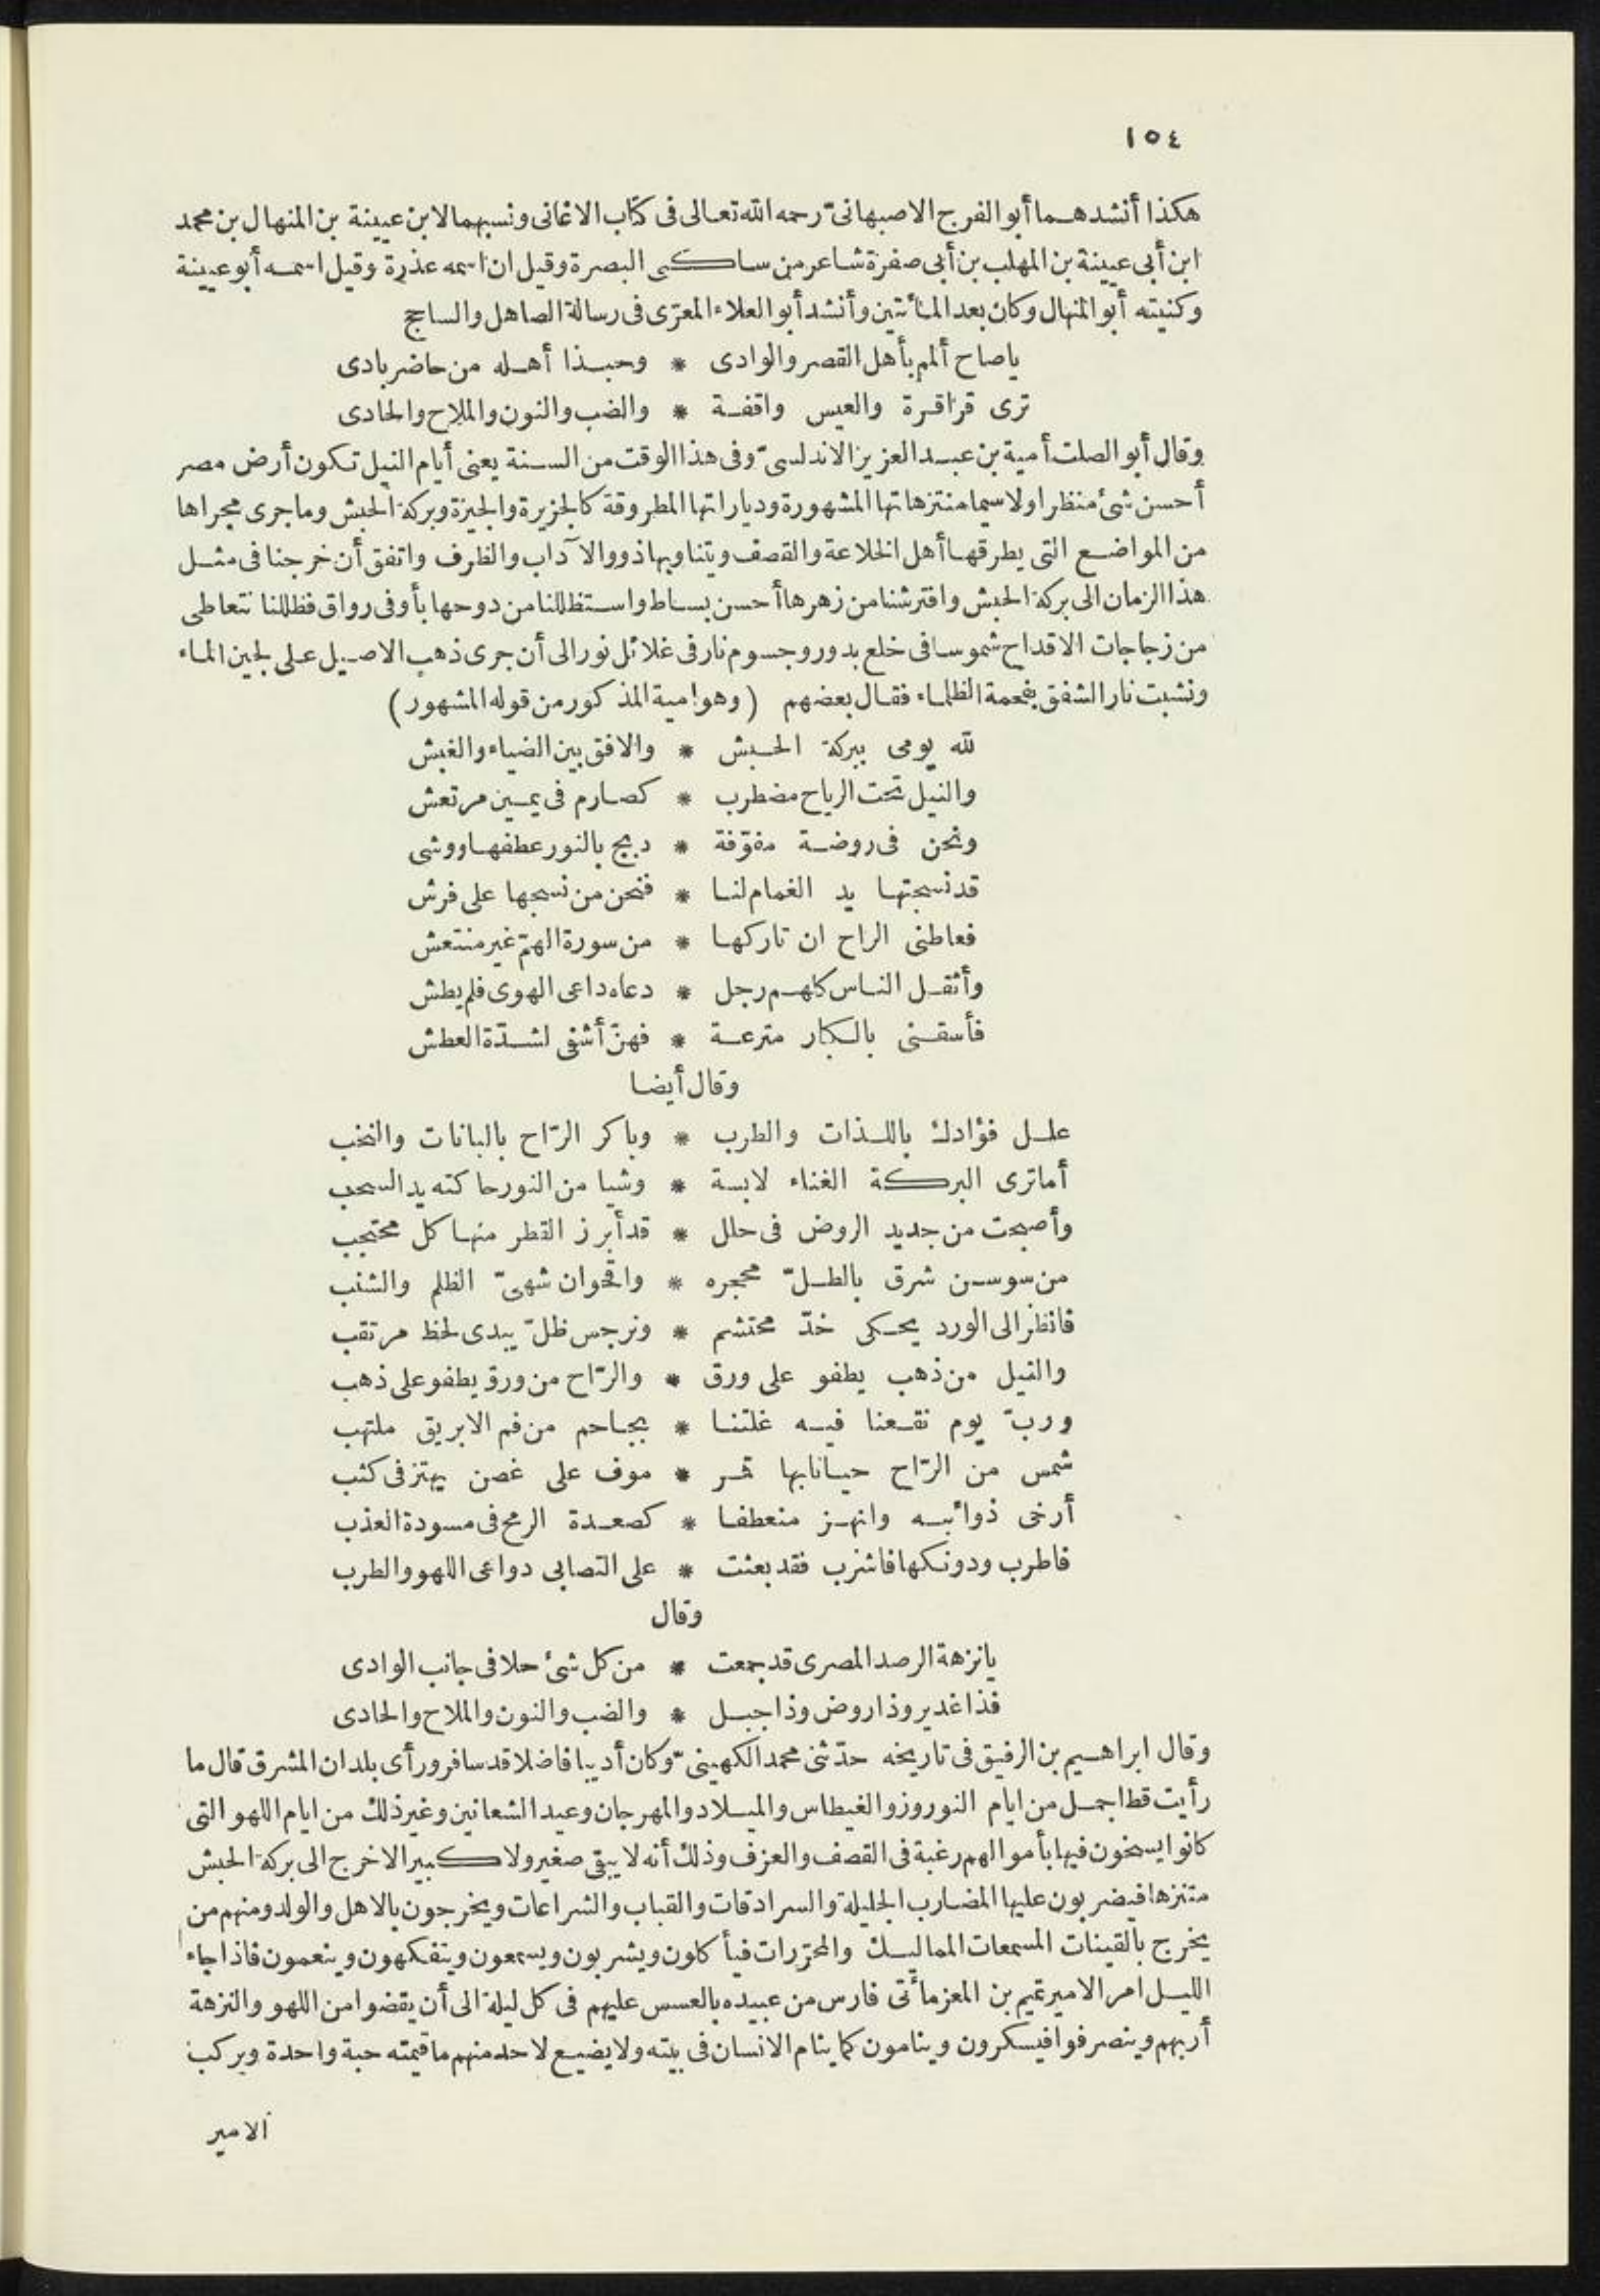 ١٥٤
هكذا أنشدهما أبو الفرج الاصبهانىّ رحمه الله تعالى فى كتاب الاغانى ونسبهما لابن عيينة بن المنهال بن محمد
ابن أبى عيينة بن المهلب بن أبى صفرة شاعر من ساكنى البصرة وقيل ان اسمه عذرة وقيل اسمه أبو عيينة
وكنيته أبو المنهال وكان بعد المائتين وأنشد أبو العلاء المعرّى فى رسالة الصاهل والساحج
ياصاح ألمم بأهل القصر والوادى * وحبذا أهله من حاضر بادى
ترى قراقرة والعيس واقفة * والضب والنون والملاح والحادى
وقال أبو الصلت أمية بن عبد العزيز الاندلسىّ وفى هذا الوقت من السنة يعنى أيام النيل تكون أرض مصر
أحسن شئ منظرا ولا سيما منتزهاتها المشهورة وديارتها المطروقة كالجزيرة والجيزة وبركة الحبش وما جرى مجراها
من المواضع التى يطرقها أهل الخلاعة والقصف ويتناوبها ذوو الآداب والظرف واتفق أن خرجنا فى مثل
هذا الزمان الى بركة الحبش وافترشنا من زهرها أحسن بساط واستظللنا من دوحها بأوفى رواق فظللنا نتعاطى
من زجاجات الاقداح شموسا فى خلع بدور وجسوم نار فى غلائل نور الى أن جرى ذهب الاصيل على لجين الماء
ونشبت نار الشفق بفحمة الظلماء فقال بعضهم (وهو امية المذكور من قوله المشهور)
لله يومى ببركة الحبش * والافق بين الضياء والغبش
والنيل تحت الرياح مضطرب * كصارم فى يمين مرتعش
ونحن فى روضة مفوّفة * دبج بالنور عطفها ووشى
قد نسجتها يد الغمام لنا * فنحن من نسجها على فرش
فعاطنى الراح ان تاركها * من سورة الهمّ غير منتعش
وأثقل الناس كلهم رجل * دعاه داعى الهوى فلم يطش
فأسقنى بالكبار مترعة * فهنّ أشفى لشدّة العطش
وقال أيضا
علل فؤادك باللذات والطرب * وباكر الرّاح بالبانات والنخب
أما ترى البركة الغناء لابسة * وشيا من النور حاكته يد السحب
وأصبحت من جديد الروض فى حلل * قد أبرز القطر منها كل محتجب
من سوسن شرق بالطلّ محجره * واقحوان شهىّ الظلم والشنب
فانظر الى الورد يحكى خدّ محتشم * ونرجس ظلّ يبدى لحظ مرتقب
والنيل من ذهب يطفو على ورق * والرّاح من ورق يطفو على ذهب
وربّ يوم نقعنا فيه غلتنا * بجاحم من فم الابريق ملتهب
شمس من الرّاح حيانا بها قمر * موف على غصن يهتز فى كثب
أرخى ذوائبه وانهز منعطفا * كصعدة الرمح فى مسودة العذب
فاطرب ودونكها فاشرب فقد بعثت * على التصابى دواعى اللهو والطرب
وقال
يانزهة الرصد المصرى قد جمعت * من كل شئ حلا فى جانب الوادى
فذا غدير وذا روض وذا جبل * والضب والنون والملاح والحادى
وقال ابراهيم بن الرفيق فى تاريخه حدّثنى محمد الكهينىّ وكان أديبا فاضلا قد سافر ورأى بلدان المشرق قال ما
رأيت قط اجمل من ايام النوروز والغيطاس والميلاد والمهرجان وعيد الشعانين وغير ذلك من ايام اللهو التى
كانوا يسخون فيها بأموالهم رغبة فى القصف والعزف وذلك أنه لا يبقى صغير ولا كبير الا خرج الى بركة الحبش
متنزها فيضربون عليها المضارب الجليلة والسرادقات والقباب والشراعات ويخرجون بالاهل والولد ومنهم من
يخرج بالقينات المسمعات المماليك والمحرّرات فيأكلون ويشربون ويسمعون ويتفكهون وينعمون فاذا جاء
الليل امر الامير تميم بن المعز مائتى فارس من عبيده بالعسس عليهم فى كل ليلة الى أن يقضوا من اللهو والنزهة
أربهم وينصرفوا فيسكرون وينامون كما ينام الانسان فى بيته ولا يضيع لاحد منهم ما قيمته حبة واحدة ويركب
الامير